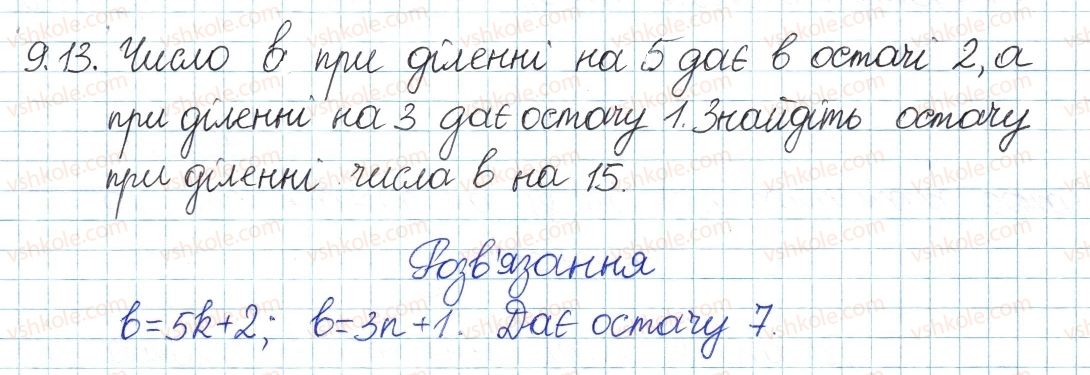 9.13. Число b при діленні на 5 дає в остачі 2, а
при діленні на 3 дає остачу 1. Знайдіть остачу
при діленні числа b на 15.
Розв'язання
b=5k+2; b=3n+1. Дає остачу 7.